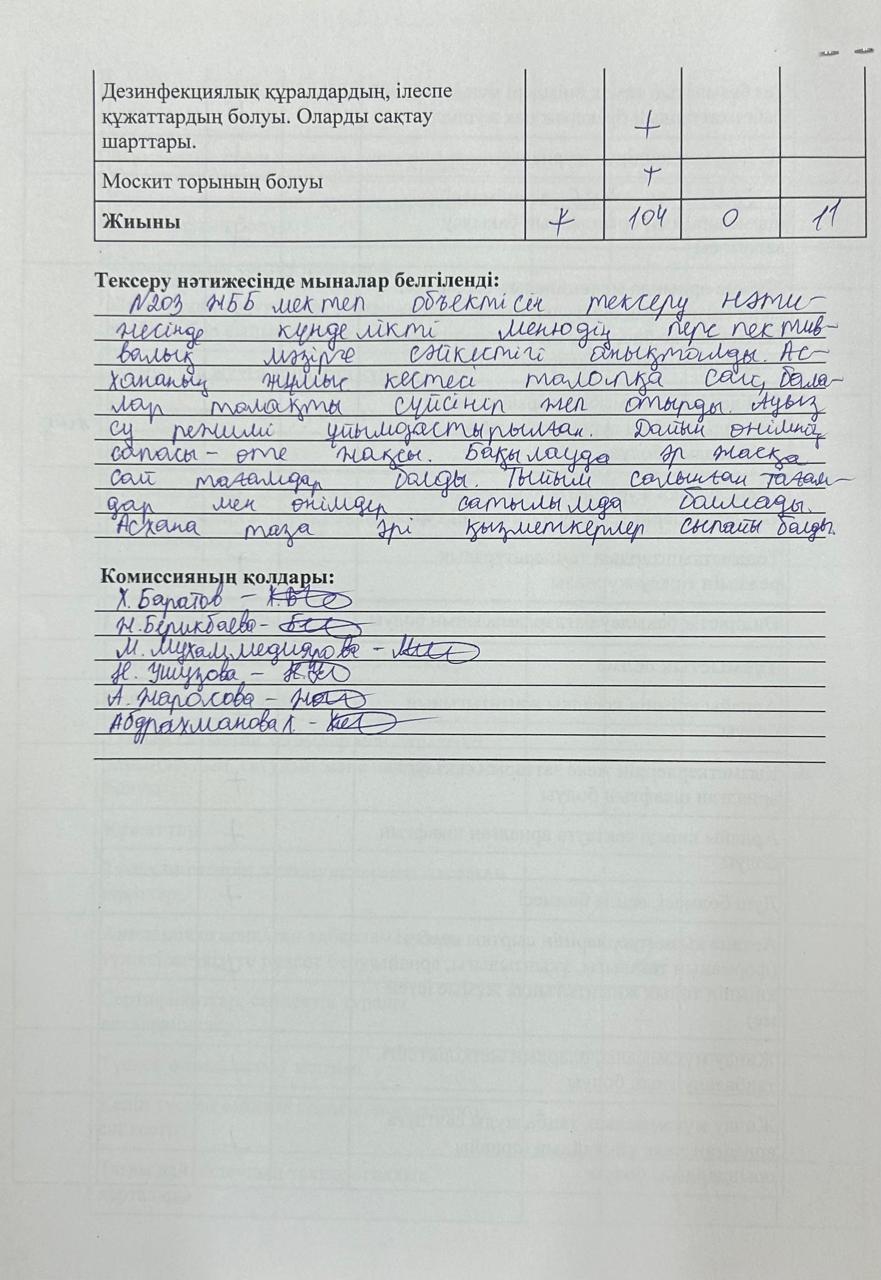 Дезинфекциялық құралдардың, ілеспе
құжаттардың болуы. Оларды сақтау
шарттары. +
Москит торының болуы +
Жиыны + 104 0 11
Тексеру нәтижесінде мыналар белгіленді:
№203 ЖББ мектеп объектісін тексеру нәти-
жесінде күнделікті менюдің перспектив-
валық мәзірге сәйкестігі анықталды. Ас-
хананың жұмыс кестесі талапқа сай, бала-
лар тамақты сүйсініп жеп отырды. Ауыз
су режимі ұйымдастырылған. Дайын өнімнің
сапасы - өте жақсы. Бақылауда әр жасқа
сай тағамдар болды. Тыйым салынған тағам-
дар мен өнімдер сатылымда болмады.
Асхана таза әрі қызметкерлер сыпайы болды.
Комиссияның қолдары:
Х. Баратов -
Н. Берикбаева -
М. Мухаммедиярова -
Н. Ушузова -
А. Жарасова -
Абдрахманова Л. -